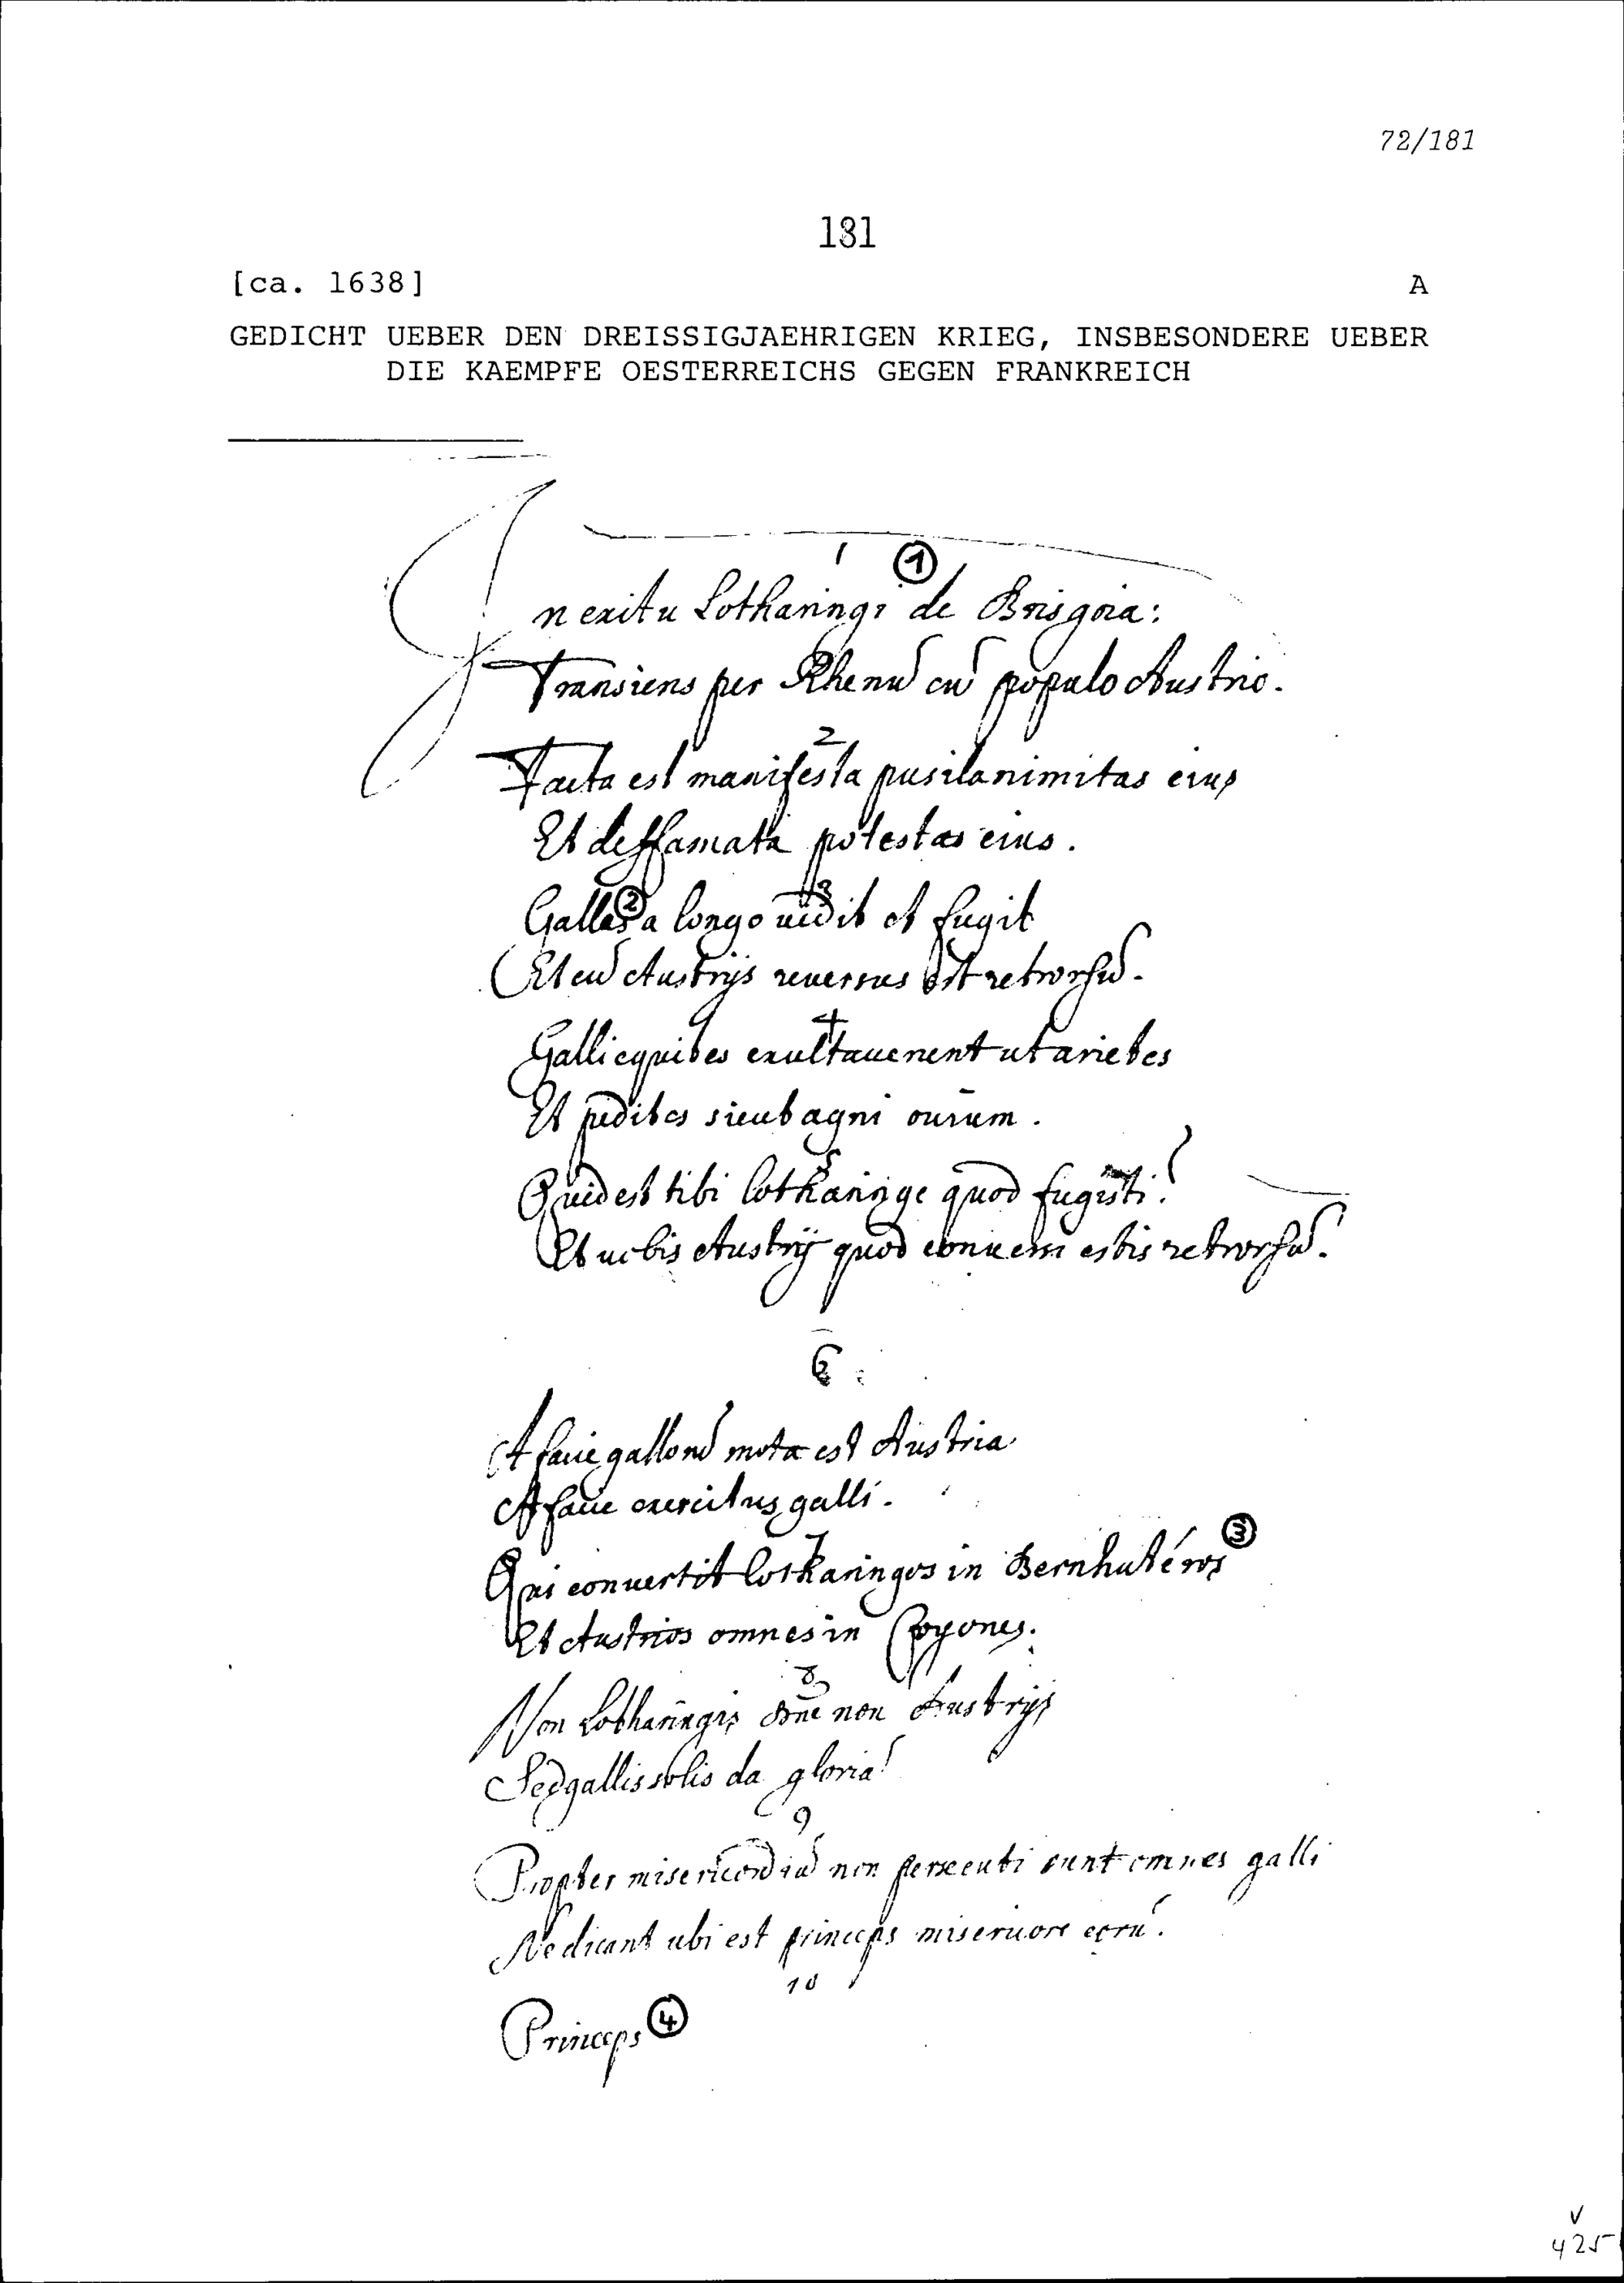 72/181
181
[ca. 1638] A
GEDICHT UEBER DEN DREISSIGJAEHRIGEN KRIEG, INSBESONDERE UEBER
DIE KAEMPFE OESTERREICHS GEGEN FRANKREICH
1 ①
In exitu Lotharingi de Brisgoia:
Transiens per Rhenū cū populo Austrio.
2
Facta est manifesta pusilanimitas eius
Et deffamata potestas eius.
3
Gallas ② a longo uidit et fugit
Et cū Austrijs reuersus est retrorsū.
4
Galli equites exultauerunt ut arietes
Et pedites sicut agni ouium.
5
Quid est tibi lotharinge quod fugisti?
Et uobis Austrij quod conuersi estis retrorsū.
6
A facie gallorū mota est Austria
A facie exercitus galli.
7
Qui conuertit lotharingos in Bernhutéros ③
Et Austrios omnes in Coyones.
8
Non Lotharingis dn̄e non Austrijs
Sed gallis solis da gloriā
9
Propter misericordiā non persecuti sunt omnes galli
Ne dicant ubi est princeps eorū.
10
Princeps ④
v
425